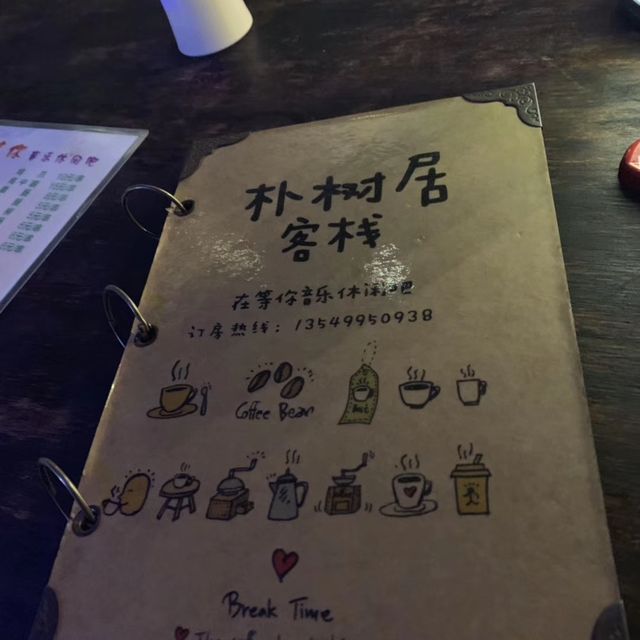 朴树居
客栈
在等你音乐休闲吧
订房热线：13549950938
Coffee Bean
Break Time